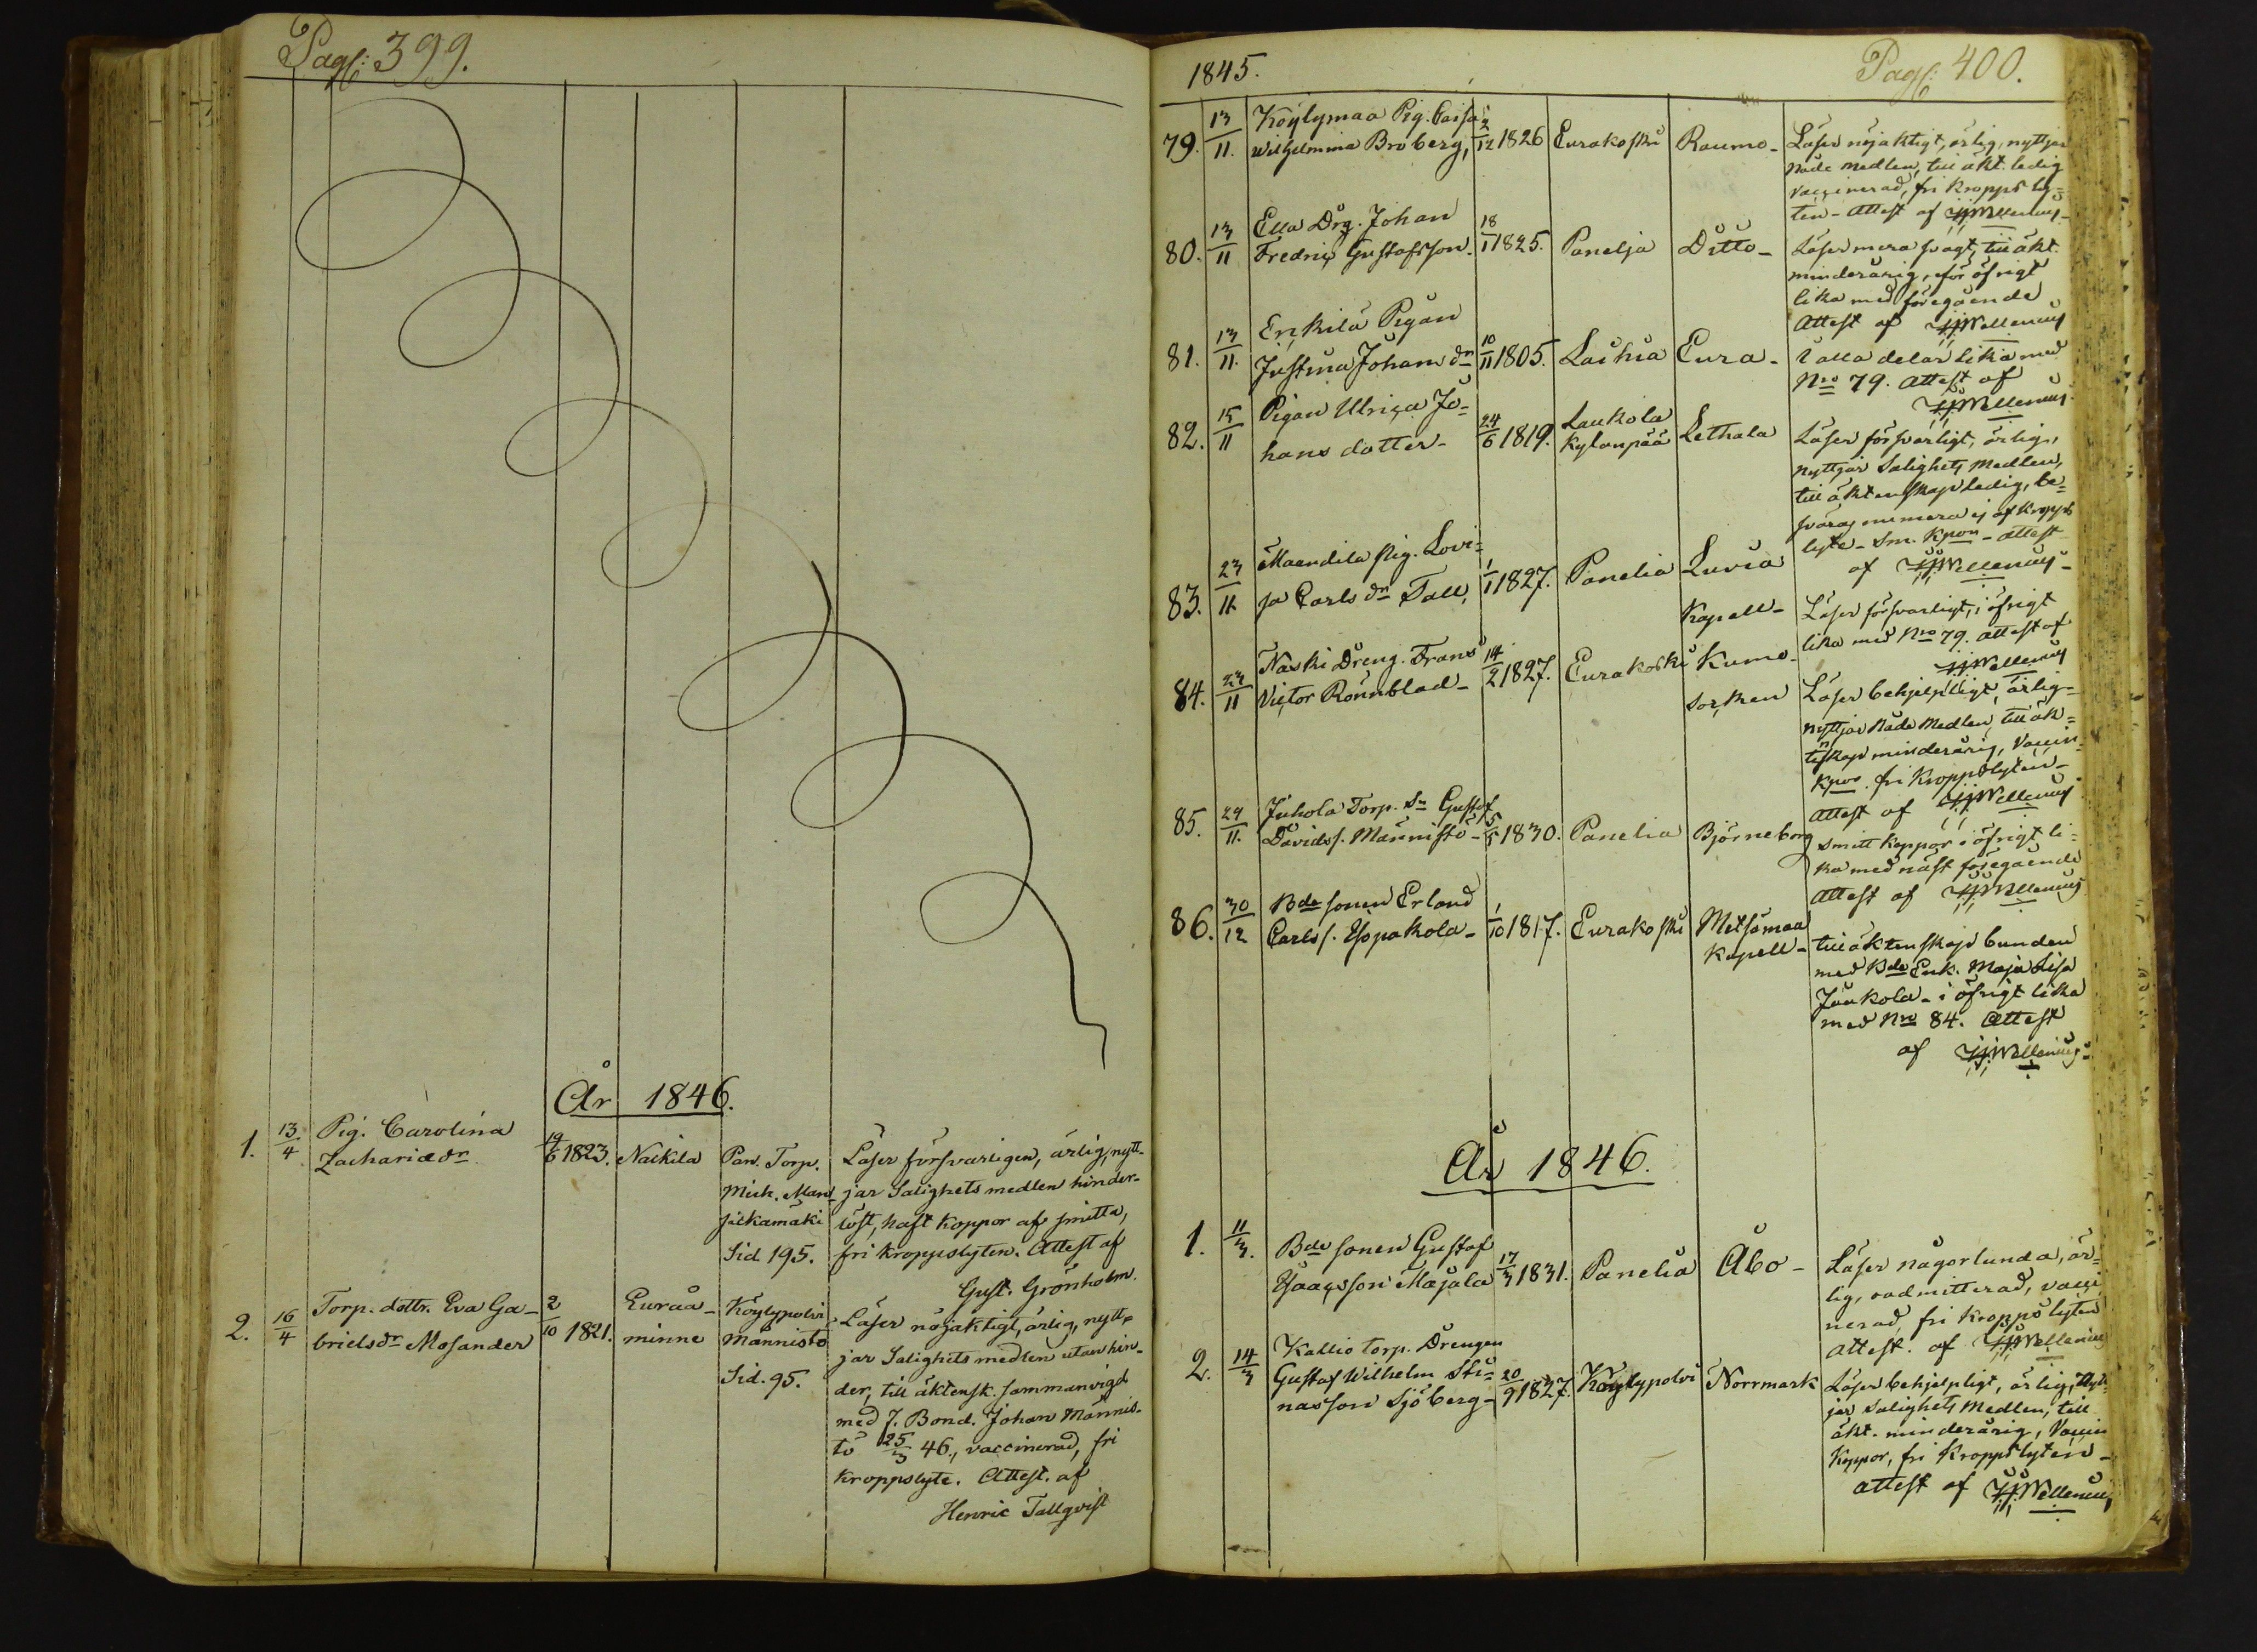 Pag: 399.
År 1846.
1. 13/4 Pig. Carolina
Zachariædr 19/6 1823. Nackila Par. Torp. Läser försvarligen, ärlig, nytt-
Mich. Man- jar Salighets medlen hinder-
jälkamäki löst, haft koppor af smitta,
Sid. 195. fri kroppslyten. Attest af
Gust. Grönholm.
2. 16/4 Torp. dottr. Eva Ga- 2/10 1821. Euraå- Köylypolvi Läser nöjaktigt, ärlig, nytt-
brielsdr Mosander minne Männistö
jar Salighets medlen utan hin-
Sid. 95. der, till äktensk. sammanvigd
med J. Bond. Johan Männis-
tö 25/3 46., vaccinerad, fri
kroppslyte. Attest. af
Henric Tallqvist
1845. Pag: 400.
79. 13/11. Köylymaa Pig. Caisa
Wilhelmina Broberg, 2/12 1826 Eurakoski Raumo- Läser nöjaktigt, ärlig, nyttjar
Nåde medlen, till äkt. ledig
vaccinerad, fri kropps ly=
ten - attest af JJWellenius
80. 13/11 Ella Drg. Johan
Fredric Gustafsson. 18/1 1825. Panelja Ditto- Läser mera svagt, till äkt.
minderårig, för öfrigt
lika med föregående
Attest af JJWellenius
81. 13/11. Erkilä Pigan
Justina Johansdr 10/11 1805. Laihia Eura- i alla delar lika med
Nro 79. attest af
JJWellenius
82. 15/11 Pigan Ulrica Jo=
hans dotter- 24/6 1819. Laukola
Kylänpää Lethala Läser försvarligt, ärlig,
nyttjar Salighets medlen,
till äktenskap ledig, be=
sväras numera ej af kropps
lyte - Sm. Kpon - attest
af JJWellenius-
83. 23/11 Maandila pig. Lovi=
sa Carls dr Tall, 1/1 1827. Panelia Luvia
Kapell- Läser försvarligt, i öfrigt
lika med Nro 79. attest af
JJWellenius
84. 23/11 Naski Dreng. Frans
Victor Rönnblad- 14/2 1827. Eurakoski Kumo-
socken Läser behjelpligt, ärlig-
nyttjar Nåde Medlen, till äk=
tskap minderårig, Vaccin-
Kpor. fri Kroppslyten-
attest af JJWellenius
85. 24/11. Juhola Torp. Sn Gustaf
Davidss. Männistö- 5/5 1830. Panelia Björneborg smitt koppor i öfrigt li=
ka med näst föregående
attest af JJWellenius
86. 30/12 Bde sonen Erland
Carlss. Esspakola- 1/10 1817. Eurakoski Metsämaa
Kapell- till äktenskap bunden
med Bde Enk. Maja Lisa
Juukola - i öfrigt lika
med Nro 84. Attest
af JJWellenius-
År 1846.
1. 11/3. Bde sonen Gustaf
Isaacsson Majala 17/3 1831. Panelia Åbo- Läser någorlunda, är=
lig, oadmitterad, vacci
nerad, fri kroppslyten
attest. af JJWellenius
2. 14/3 Kallio torp. Drengen
Gustaf Wilhelm Sti=
nasson Sjöberg- 20/9 1827. Köylypolvi Norrmark Läser behjelpligt, ärlig, nytt
jar Salighets Medlen, till
äkt. minderårig, Vaccin
Koppor, fri Kroppslyten-
attest af JJWellenius